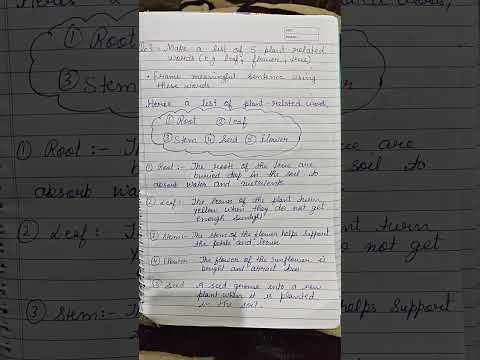 Q.3 - Make a list of 5 plant related
words (e.g leaf, flower, tree)
• Frame meaningful sentence using
these words
Here a list of plant-related words,
① Root ② Leaf
③ Stem ④ Seed ⑤ Flower
① Root :- The roots of the tree are
buried deep in the soil to
absorb water and nutrients
② Leaf : The leaves of the plant turn
yellow when they do not get
enough sunlight
③ Stem :- The stem of the flower helps support
the petals and leaves
④ Flower The flower of the sunflower is
bright and attract bees
⑤ Seed A seed grows into a new
plant when it is planted
in the soil.